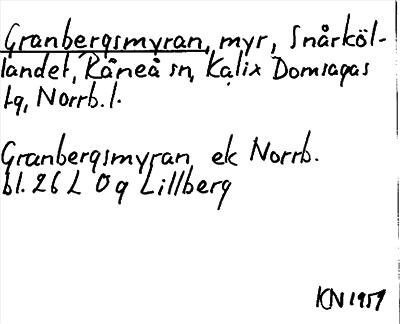 Granbergsmyran, myr, Snårköl-
landet, Råneå sn, Kalix Domsagas
tg, Norrb. l.
Granbergsmyran ek Norrb.
bl. 26 L 0 g Lillberg
KN 1951